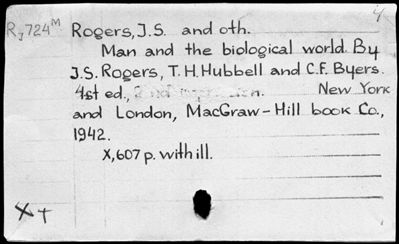 R,724ᴹ Rogers, J.S. and oth.
Man and the biological world. By
J.S. Rogers, T.H. Hubbell and C.F. Byers.
1st ed., New York
and London, MacGraw-Hill book Co.,
1942.
X, 607 p. with ill.
X T